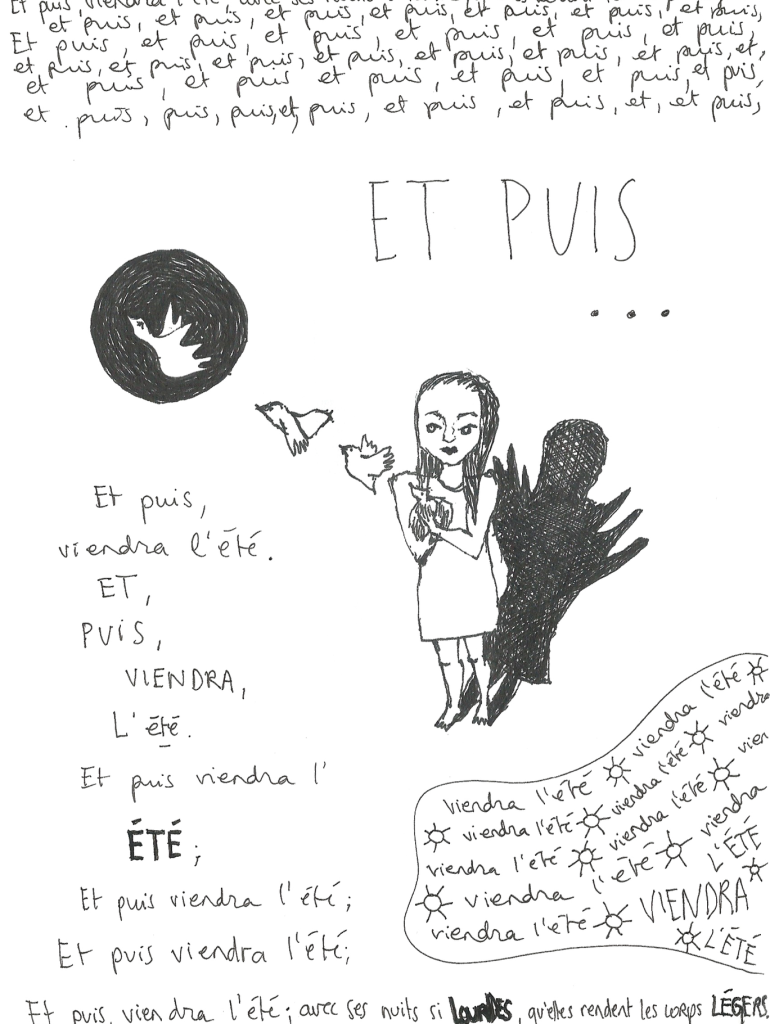 Et puis viendra l'été, avec ses
et puis, et puis, et puis, et puis, et puis, et puis, et puis, et puis,
Et puis, et puis, et puis, et puis, et puis, et puis,
et puis, et puis, et puis, et puis, et puis, et puis, et puis, et,
et puis, et puis et puis, et puis, et puis, et puis
et puis, puis, puis, et, puis, et puis, et puis, et, et puis,
ET PUIS
...
Et puis,
viendra l'été.
ET,
PUIS,
VIENDRA,
L'été.
Et puis viendra l'
ÉTÉ ;
Et puis viendra l'été ;
Et puis viendra l'été;
viendra l'été viendra l'été
viendra l'été viendra l'été viendra
viendra l'été viendra l'été vien
viendra l'été viendra
viendra l'été L'ÉTÉ
VIENDRA
L'ÉTÉ
Et puis, viendra l'été ; avec ses nuits si LOURDES, qu'elles rendent les corps LÉGERS,